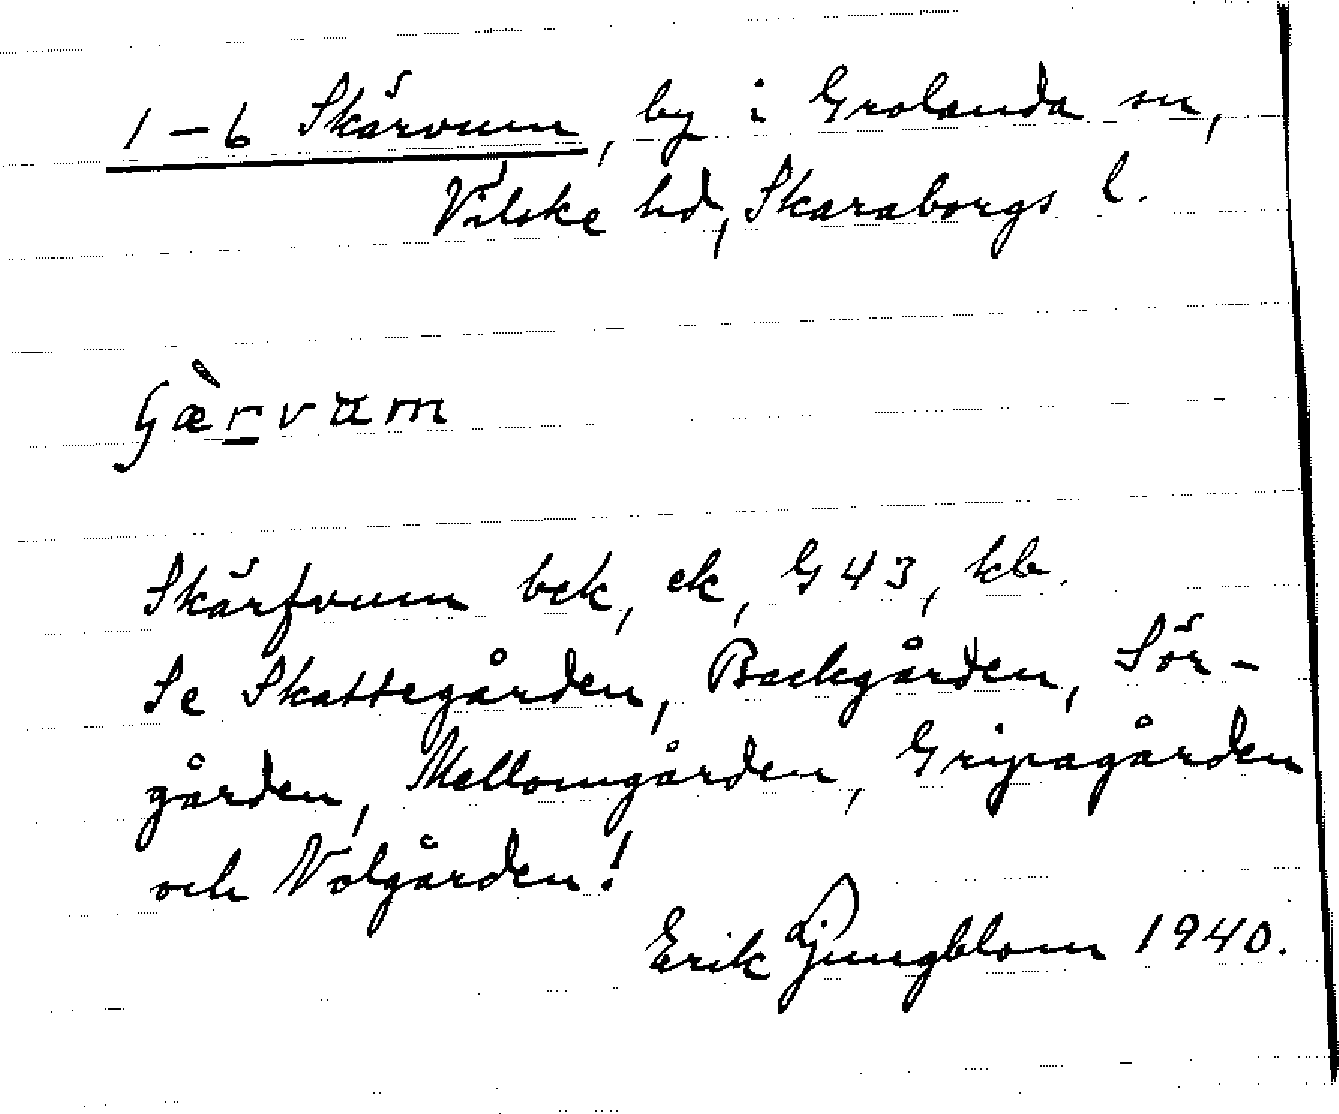 1–6 Skärvum, by i Grolanda sn,
Vilske hd, Skaraborgs l.
Skärfvum bek, ek, G 43, kb.
Se Skattegården, Backgården, Sör-
gården, Mellomgården, Gripagården
och Nolgården!
Erik Ljungblom 1940.